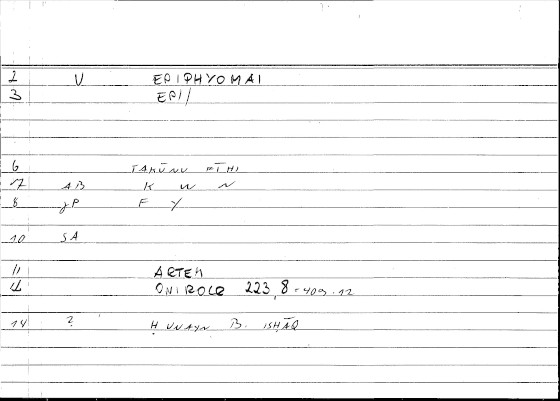 2 V EPIPHYOMAI
3 EPI/
6 TAKŪNU FĪHI
7 AB K W N
8 JP F Y
10 SA
11 ARTEM
12 ONIROCR 223,8 = 409.12
14 ? ḤUNAYN B. ISḤĀQ